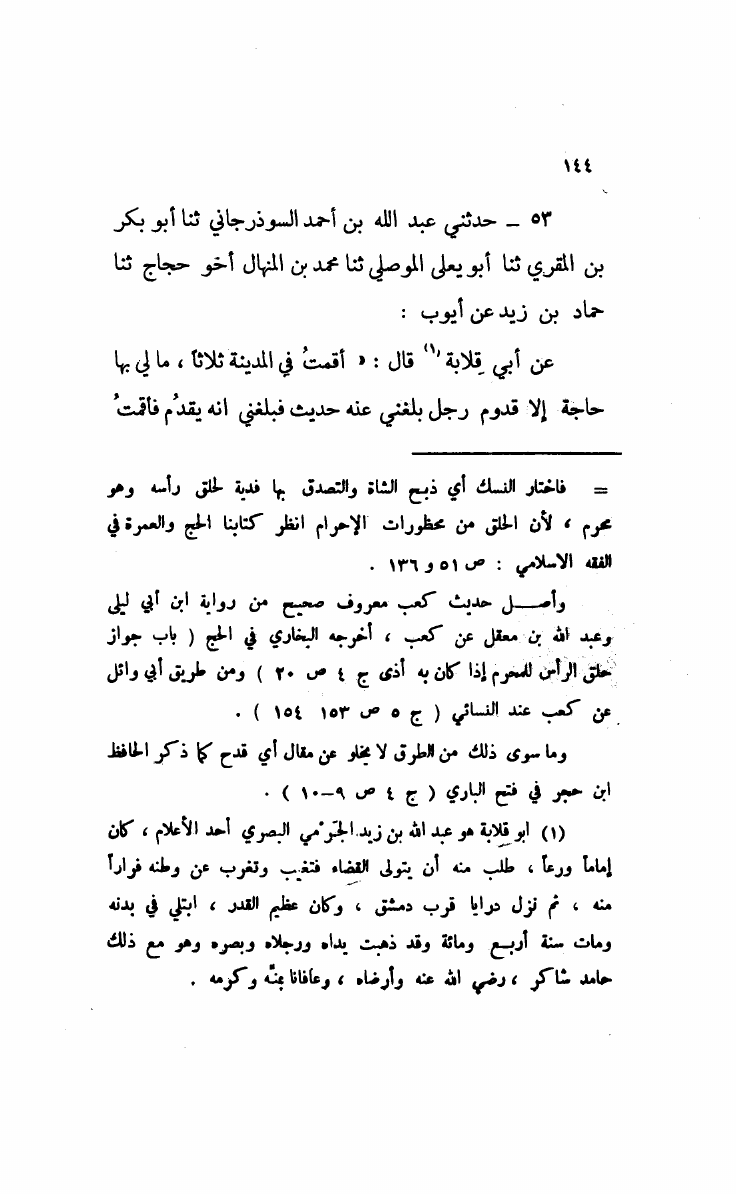 ١٤٤
٥٣ – حدثني عبد الله بن أحمد السوذرجاني ثنا أبو بكر
بن المقري ثنا أبو يعلى الموصلي ثنا محمد بن المنهال أخو حجاج ثنا
حماد بن زيد عن أيوب :
عن أبي قِلابة (١) قال : « أقمتُ في المدينة ثلاثاً ، ما لي بها
حاجة إلا قدوم رجل بلغني عنه حديث فبلغني انه يقدُم فأقمتُ
= فاختار النسك أي ذبح الشاة والتصدق بها فدية لحلق رأسه وهو
محرم ، لأن الحلق من محظورات الإحرام انظر كتابنا الحج والعمرة في
الفقه الاسلامي : ص ٥١ و ١٣٦ .
وأصـــل حديث كعب معروف صحيح من رواية ابن أبي ليلى
وعبد الله بن معقل عن كعب ، أخرجه البخاري في الحج ( باب جواز
حلق الرأس للمحرم إذا كان به أذى ج ٤ ص ٢٠ ) ومن طريق أبي وائل
عن كعب عند النسائي ( ج ٥ ص ١٥٣ ١٥٤ ) .
وما سوى ذلك من الطرق لا يخلو عن مقال أي قدح كما ذكر الحافظ
ابن حجر في فتح الباري ( ج ٤ ص ٩–١٠ ) .
(١) أبو قِلابة هو عبد الله بن زيد الجَرْمي البصري أحد الأعلام ، كان
إماماً ورعاً ، طلب منه أن يتولى القضاء فتغيب وتغرب عن وطنه فراراً
منه ، ثم نزل درايا قرب دمشق ، وكان عظيم القدر ، ابتلي في بدنه
ومات سنة أربع ومائة وقد ذهبت يداه ورجلاه وبصره وهو مع ذلك
حامد شاكر ، رضي الله عنه وأرضاه ، وعافانا بمنّه وكرمه .